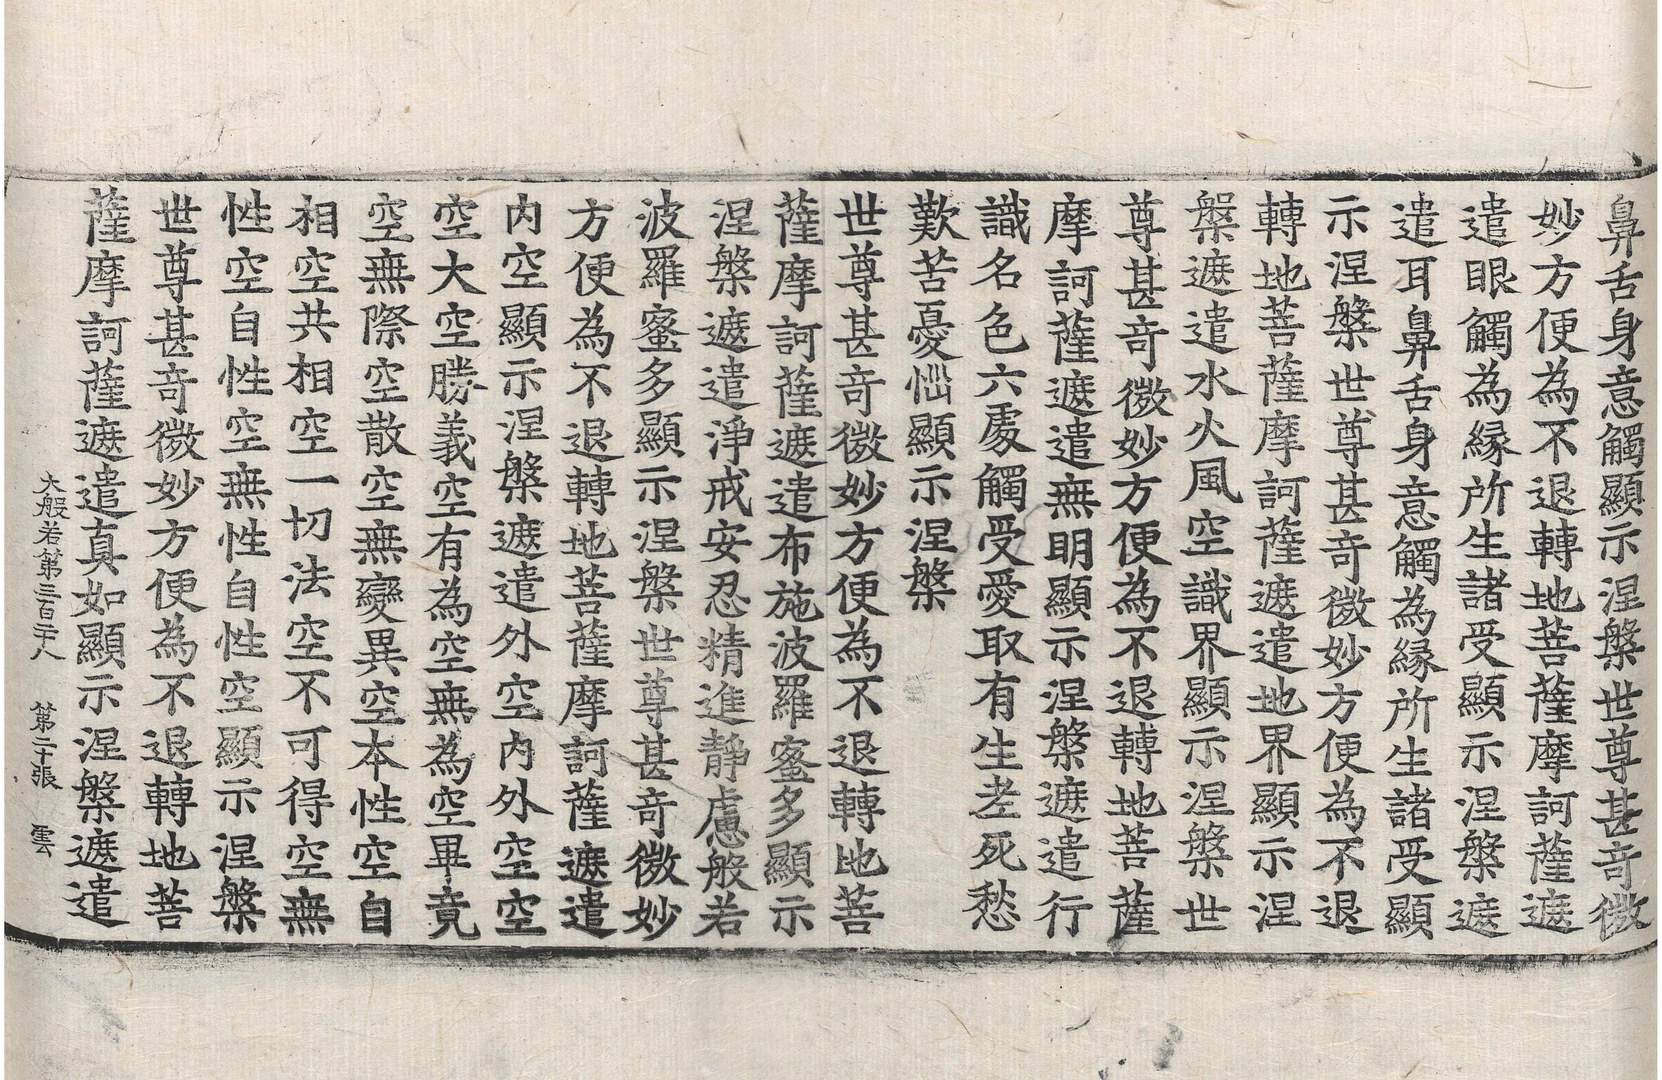 鼻舌身意觸顯示涅槃世尊甚奇微
妙方便為不退轉地菩薩摩訶薩遮
遣眼觸為緣所生諸受顯示涅槃遮
遣耳鼻舌身意觸為緣所生諸受顯
示涅槃世尊甚奇微妙方便為不退
轉地菩薩摩訶薩遮遣地界顯示涅
槃遮遣水火風空識界顯示涅槃世
尊甚奇微妙方便為不退轉地菩薩
摩訶薩遮遣無明顯示涅槃遮遣行
識名色六處觸受愛取有生老死愁
歎苦憂惱顯示涅槃
世尊甚奇微妙方便為不退轉地菩
薩摩訶薩遮遣布施波羅蜜多顯示
涅槃遮遣淨戒安忍精進靜慮般若
波羅蜜多顯示涅槃世尊甚奇微妙
方便為不退轉地菩薩摩訶薩遮遣
內空顯示涅槃遮遣外空內外空空
空大空勝義空有為空無為空畢竟
空無際空散空無變異空本性空自
相空共相空一切法空不可得空無
性空自性空無性自性空顯示涅槃
世尊甚奇微妙方便為不退轉地菩
薩摩訶薩遮遣真如顯示涅槃遮遣
大般若第三百二十八 第二十張 雲